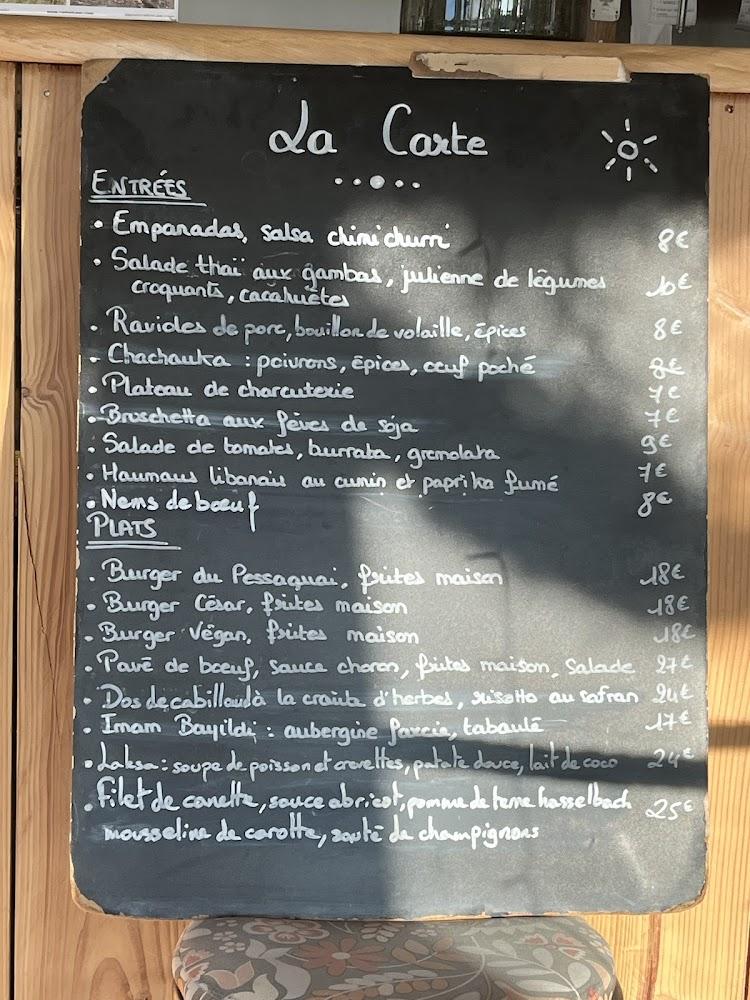 La Carte
ENTRÉES
• Empanadas, salsa chimichurri 8€
• Salade thaï aux gambas, julienne de légumes 10€
croquants, cacahuètes
• Ravioles de porc, bouillon de volaille, épices 8€
• Chachauka : poivrons, épices, œuf poché 8€
• Plateau de charcuterie 7€
• Bruschetta aux fèves de soja 7€
• Salade de tomates, burrata, gremolata 9€
• Haumaus libanais au cumin et paprika fumé 7€
• Nems de bœuf 8€
PLATS
• Burger du Pessaguai, frites maison 18€
• Burger César, frites maison 18€
• Burger Végan, frites maison 18€
• Pavé de bœuf, sauce choron, frites maison, salade 27€
• Dos de cabillaud à la croûte d'herbes, risotto au safran 24€
• Imam Bayildi : aubergine farcie, taboulé 17€
• Laksa : soupe de poisson et crevettes, patate douce, lait de coco 24€
• Filet de canette, sauce abricot, pomme de terre hasselbach 25€
mousseline de carotte, sauté de champignons